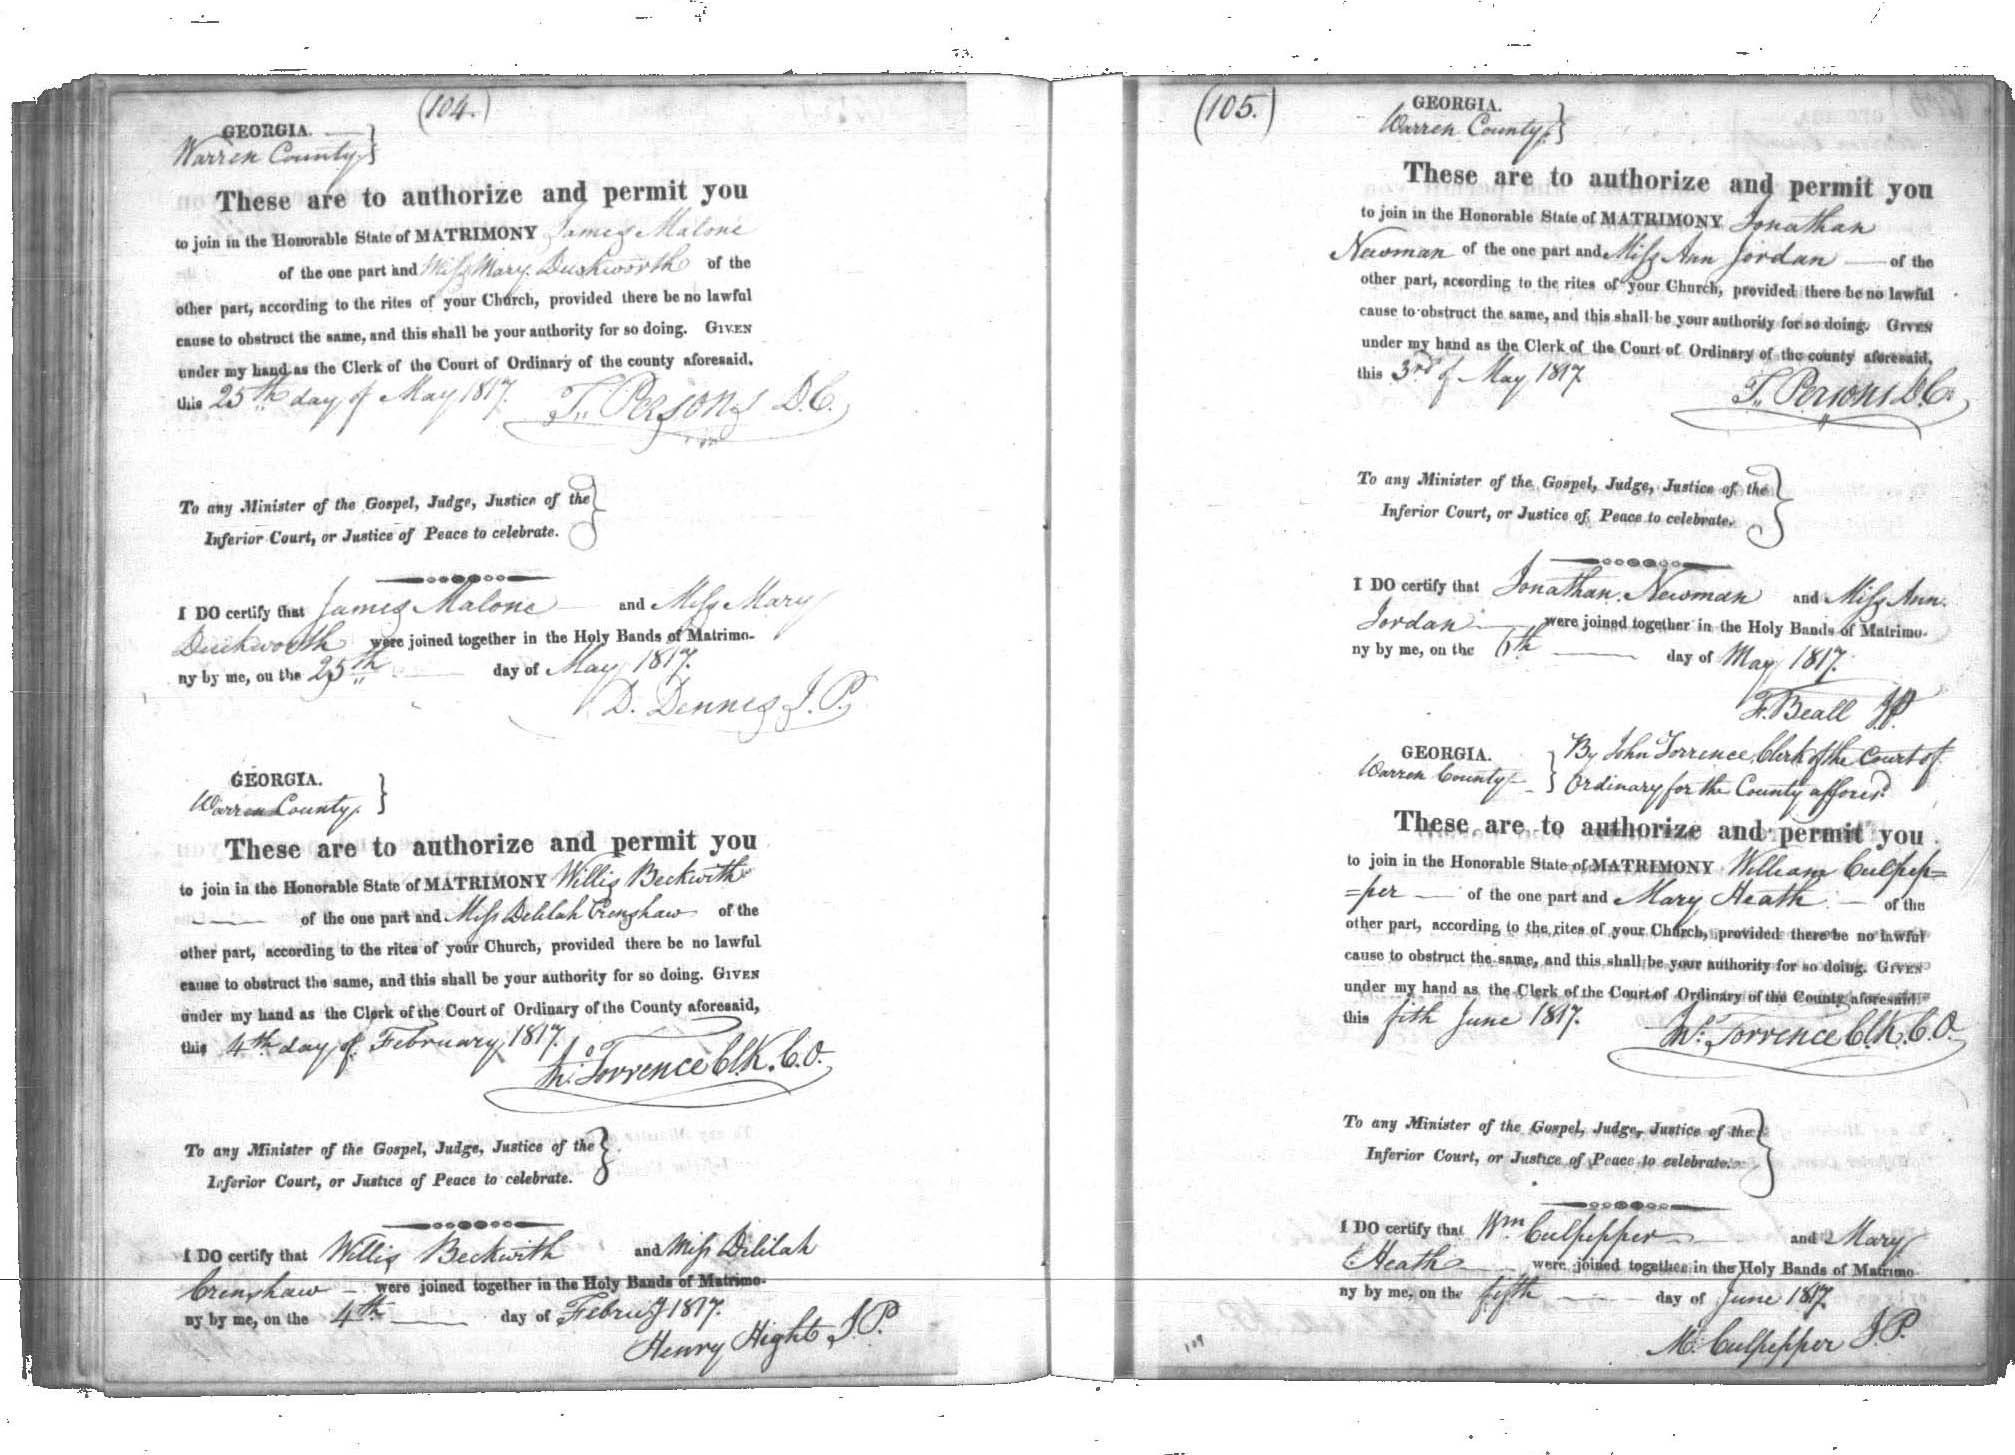 (104.)
GEORGIA.
Warren County.
These are to authorize and permit you
to join in the Honorable State of MATRIMONY James Malone
of the one part and Miss Mary Duckworth of the
other part, according to the rites of your Church, provided there be no lawful
cause to obstruct the same, and this shall be your authority for so doing. GIVEN
under my hand as the Clerk of the Court of Ordinary of the county aforesaid,
this 25th day of May 1817.
T. Persons D.C.
To any Minister of the Gospel, Judge, Justice of the
Inferior Court, or Justice of Peace to celebrate.
I DO certify that James Malone and Miss Mary
Duckworth were joined together in the Holy Bands of Matrimo-
ny by me, on the 25th day of May 1817.
D. Dennis J.P.
GEORGIA.
Warren County.
These are to authorize and permit you
to join in the Honorable State of MATRIMONY Willis Beckwith
of the one part and Miss Delilah Crenshaw of the
other part, according to the rites of your Church, provided there be no lawful
cause to obstruct the same, and this shall be your authority for so doing. GIVEN
under my hand as the Clerk of the Court of Ordinary of the County aforesaid,
this 4th day of February 1817.
Jno. Torrence Clk. C.O.
To any Minister of the Gospel, Judge, Justice of the
Inferior Court, or Justice of Peace to celebrate.
I DO certify that Willis Beckwith and Miss Delilah
Crenshaw were joined together in the Holy Bands of Matrimo-
ny by me, on the 4th day of Februy 1817.
Henry Hight J.P.
(105.)
GEORGIA.
Warren County.
These are to authorize and permit you
to join in the Honorable State of MATRIMONY Jonathan
Newman of the one part and Miss Ann Jordan of the
other part, according to the rites of your Church, provided there be no lawful
cause to obstruct the same, and this shall be your authority for so doing. GIVEN
under my hand as the Clerk of the Court of Ordinary of the county aforesaid,
this 3rd of May 1817.
T. Persons D.C.
To any Minister of the Gospel, Judge, Justice of the
Inferior Court, or Justice of Peace to celebrate.
I DO certify that Jonathan Newman and Miss Ann
Jordan were joined together in the Holy Bands of Matrimo-
ny by me, on the 6th day of May 1817.
F. Beall J.P.
GEORGIA. By John Torrence Clerk of the Court of
Warren County Ordinary for the County affores.d
These are to authorize and permit you
to join in the Honorable State of MATRIMONY William Culpep=
=per of the one part and Mary Heath of the
other part, according to the rites of your Church, provided there be no lawful
cause to obstruct the same, and this shall be your authority for so doing. GIVEN
under my hand as the Clerk of the Court of Ordinary of the County aforesaid.
this fith June 1817.
Jno. Torrence Clk. C.O.
To any Minister of the Gospel, Judge, Justice of the
Inferior Court, or Justice of Peace to celebrate.
I DO certify that Wm Culpepper and Mary
Heath were joined together in the Holy Bands of Matrimo-
ny by me, on the fifth day of June 1817
M. Culpepper J.P.